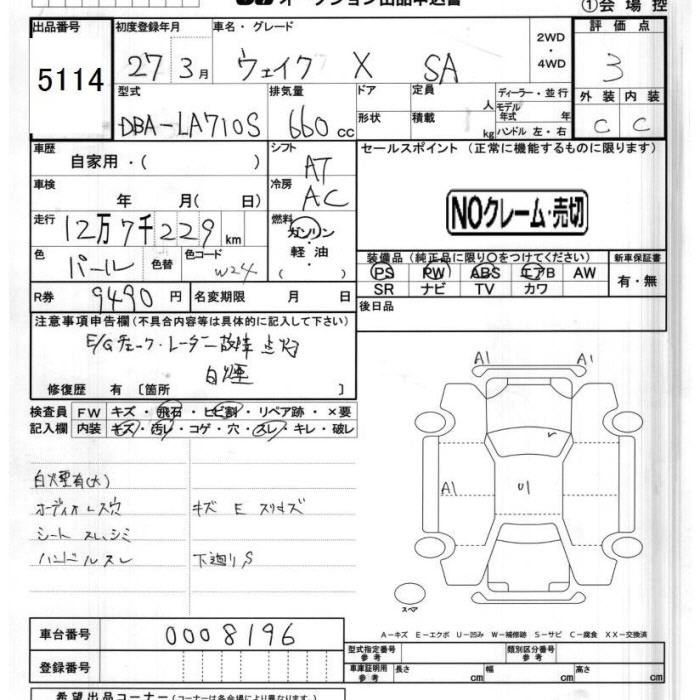 オークション出品申込書
①会場控
出品番号 初度登録年月 車名・グレード 2WD・4WD 評価点
5114 27年3月 ウェイク X SA 3
型式 排気量 ドア 定員 人 ディーラー・並行
DBA-LA710S 660cc 形状 積載 kg モデル年式 年 ハンドル 左・右
外装 内装
C C
車歴 自家用・( ) シフト AT
セールスポイント (正常に機能するものに限ります)
車検 年 月( 日) 冷房 AC
NOクレーム・売切
走行 12万7千229km 燃料 ガソリン・軽油・
色 パール 色替 色コード W24
装備品(純正品に限り○をつけてください) 新車保証書
PS PW ABS エアB AW 有・無
SR ナビ TV カワ
R券 9490円 名変期限 月 日
後日品
注意事項申告欄(不具合内容等は具体的に記入して下さい)
E/Gチェック・レーダー故障 点灯
白煙
修復歴 有 〔箇所 〕
検査員 FW キズ・飛石・ヒビ割・リペア跡・×要
記入欄 内装 キズ・汚レ・コゲ・穴・スレ・キレ・破レ
A1 A1
A1 U1
白煙有(大)
オーディオレス穴 キズ E スリキズ
シート スレ,シミ
ハンドルスレ 下廻りS
スペア
A−キズ E−エクボ U−凹み W−補修跡 S−サビ C−腐食 XX−交換済
車台番号 0008196
型式指定番号 参考 類別区分番号 参考
登録番号 車庫証明用 参考 長さ cm 幅 cm 高さ cm
希望出品コーナー(コーナーは各会場により異なります)